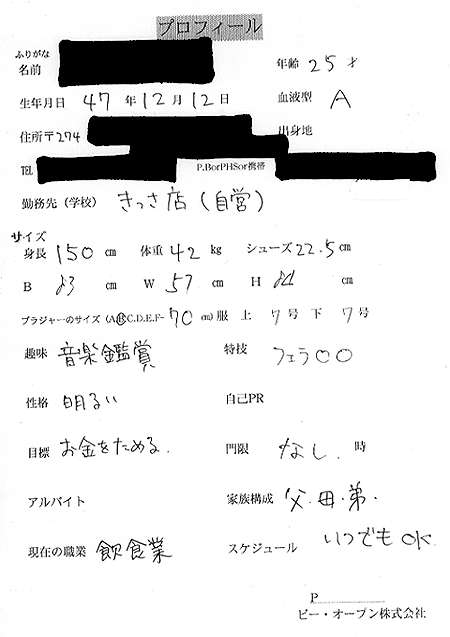 プロフィール
ふりがな
名前
年齢 25才
生年月日 47年12月12日
血液型 A
住所〒274
出身地
TEL
P.BorPHSor携帯
勤務先（学校） きっさ店（自営）
サイズ
身長 150cm 体重 42kg シューズ 22.5cm
B 83 cm W 57 cm H 81 cm
ブラジャーのサイズ (A,B,C,D,E,F- 70 cm) 服 上 7号 下 7号
趣味 音楽鑑賞
特技 フェラ〇〇
性格 明るい
自己PR
目標 お金をためる.
門限 なし. 時
アルバイト
家族構成 父.母.弟.
現在の職業 飲食業
スケジュール いつでもOK
P
ピー・オーブン株式会社